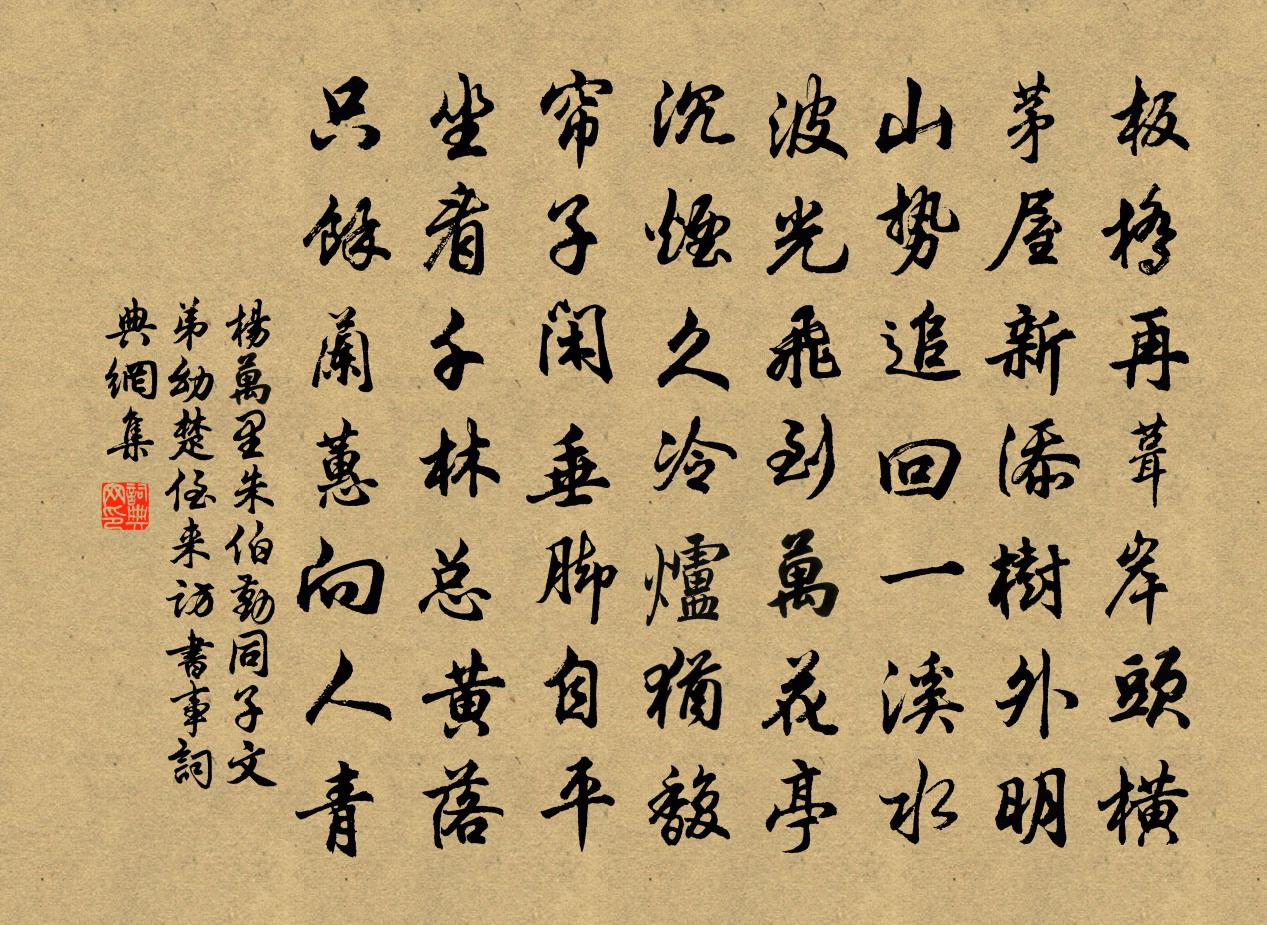 板橋再葺岸頭橫
茅屋新添樹外明
山势追回一溪水
波光飛到萬花亭
沉煙久冷爐猶馥
帘子闲垂脚自平
坐看千林总黄落
只餘蘭蕙向人青
楊萬里朱伯勤同子文
弟幼楚侄来访書事詞
典網集
詞典网印